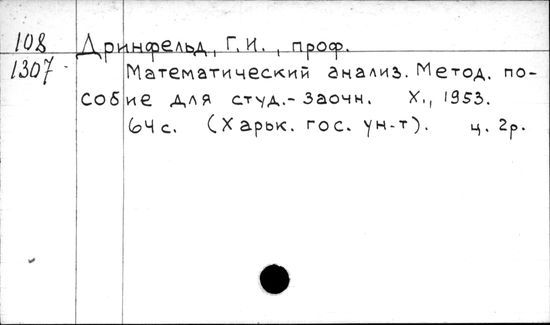 108 Дринфельд, Г.И., проф.
1307 Математический анализ. Метод. по-
собие для студ.-заочн. Х., 1953.
64с. (Харьк. гос. ун-т). ц. 2р.